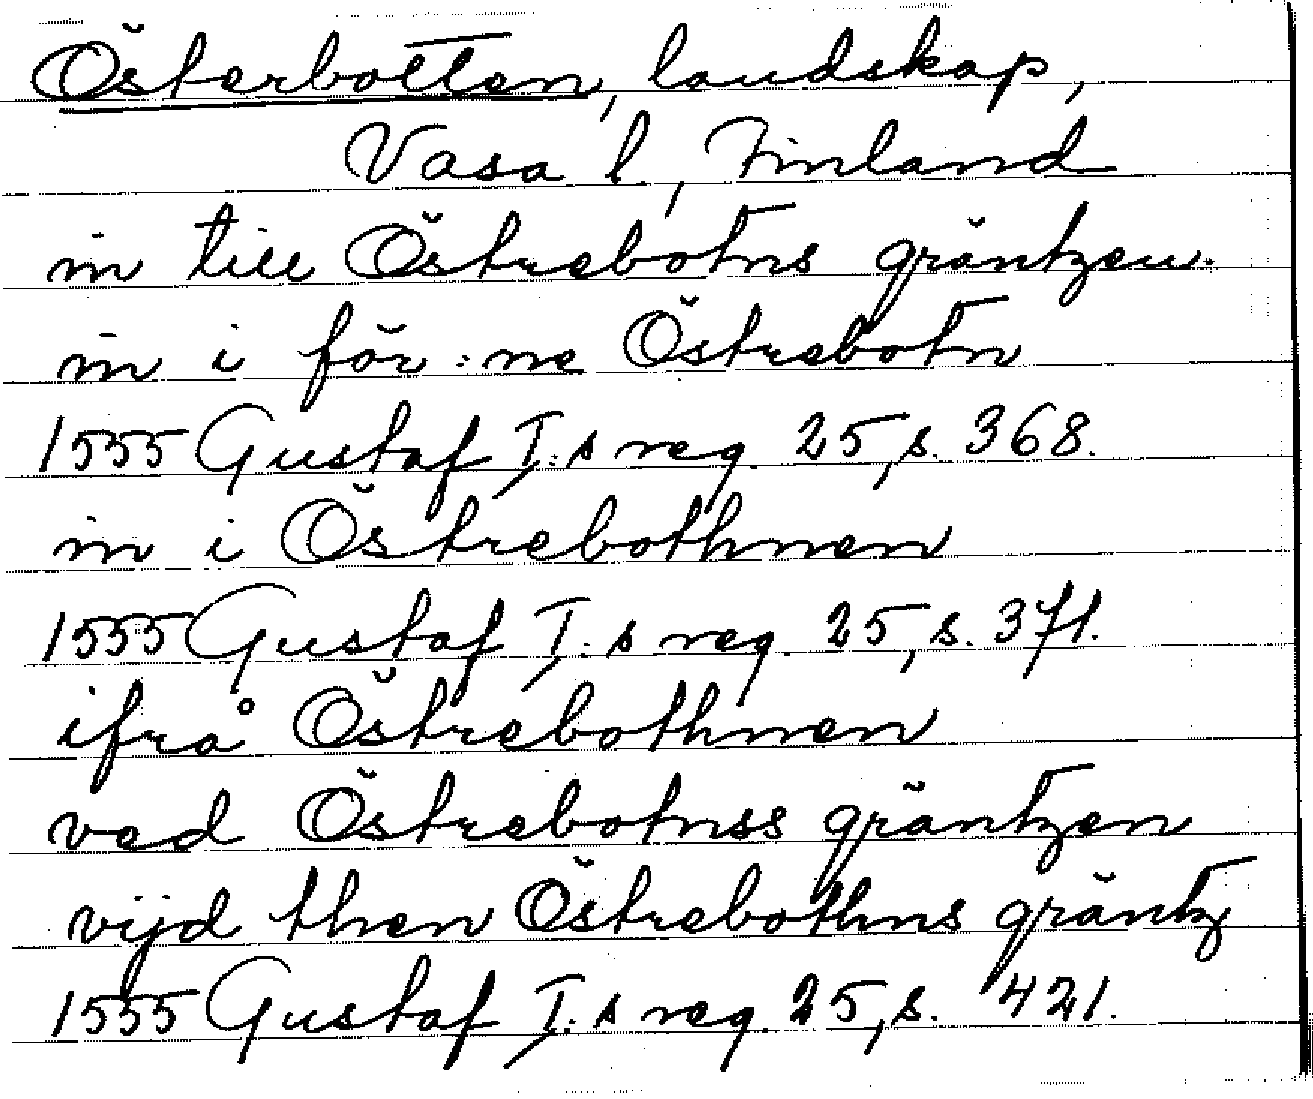 Österbotten, landskap,
Vasa l, Finland
in till Östrebotns gräntzen.
in i för:ne Östrebotn
1555 Gustaf I:s reg. 25, s. 368.
in i Östrebothnen
1555 Gustaf I:s reg. 25, s. 371.
ifrå Östrebothnen
ved Östrebotnss gräntzen
vijd then Östrebothns gräntz
1555 Gustaf I:s reg. 25, s. 421.